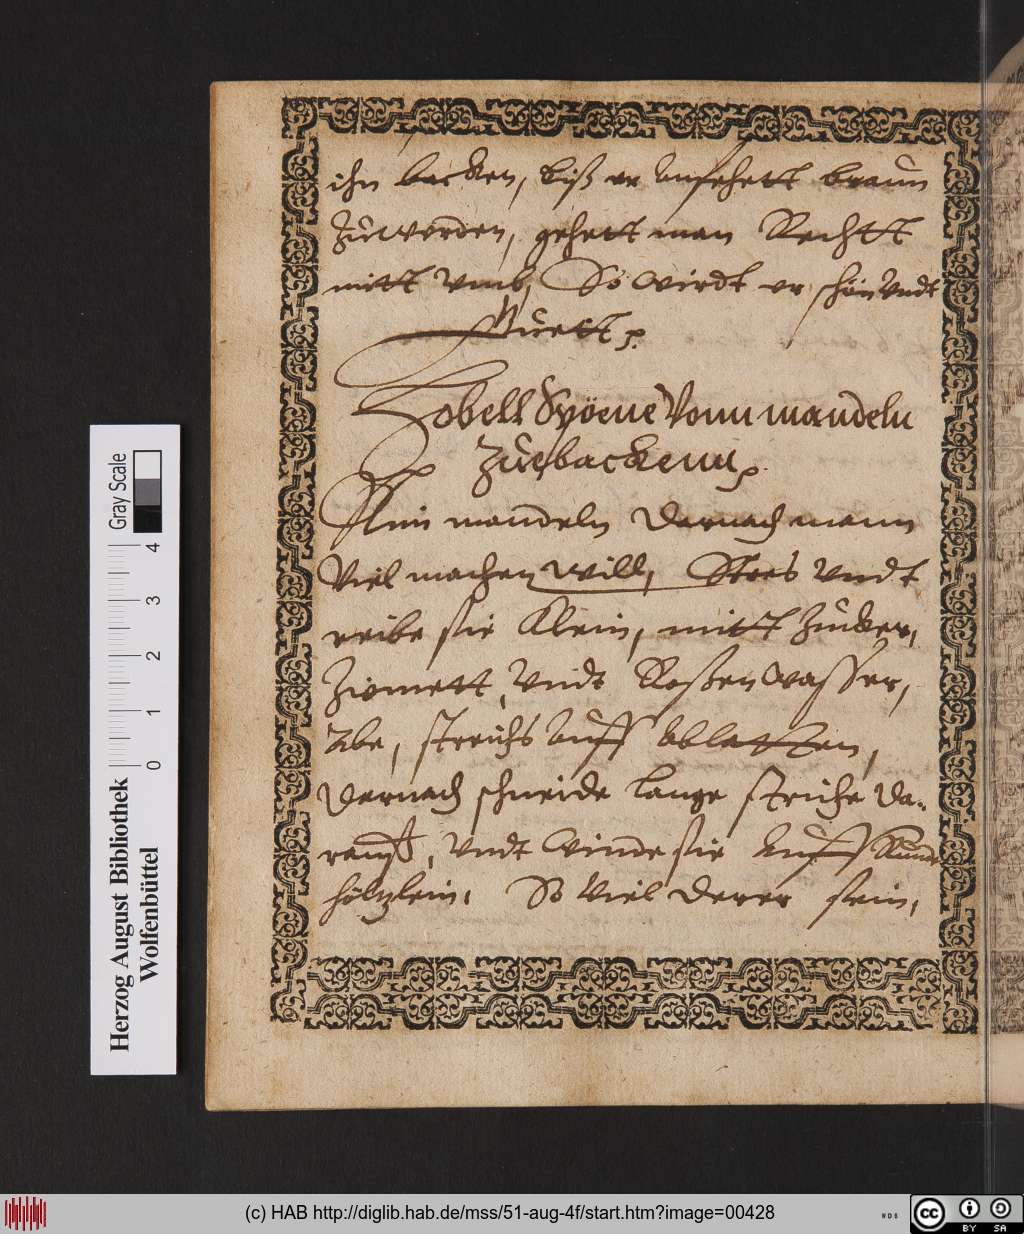 ihn backen, biß er anfehett braun
Zuwerden, gehett man Rechtt
mitt vmb, So wirdt er schön vndt
guett.
Hobell Spöene Vonn mandeln
Zue backenn.
Nim mandeln darnach mann
Viel machen will, Stoes Vndt
reibe sie Klein, mitt Zucker,
Zimmett, Vndt Roßenwasser,
abe, streichs auff oblatten,
darnach schneide lange striche da-
rauß, Vndt Winde sie auff Runde
höltzlein, So Viel derer sein,
Herzog August Bibliothek
Wolfenbüttel
Gray Scale
0 1 2 3 4
(c) HAB http://diglib.hab.de/mss/51-aug-4f/start.htm?image=00428
WDB
cc BY SA